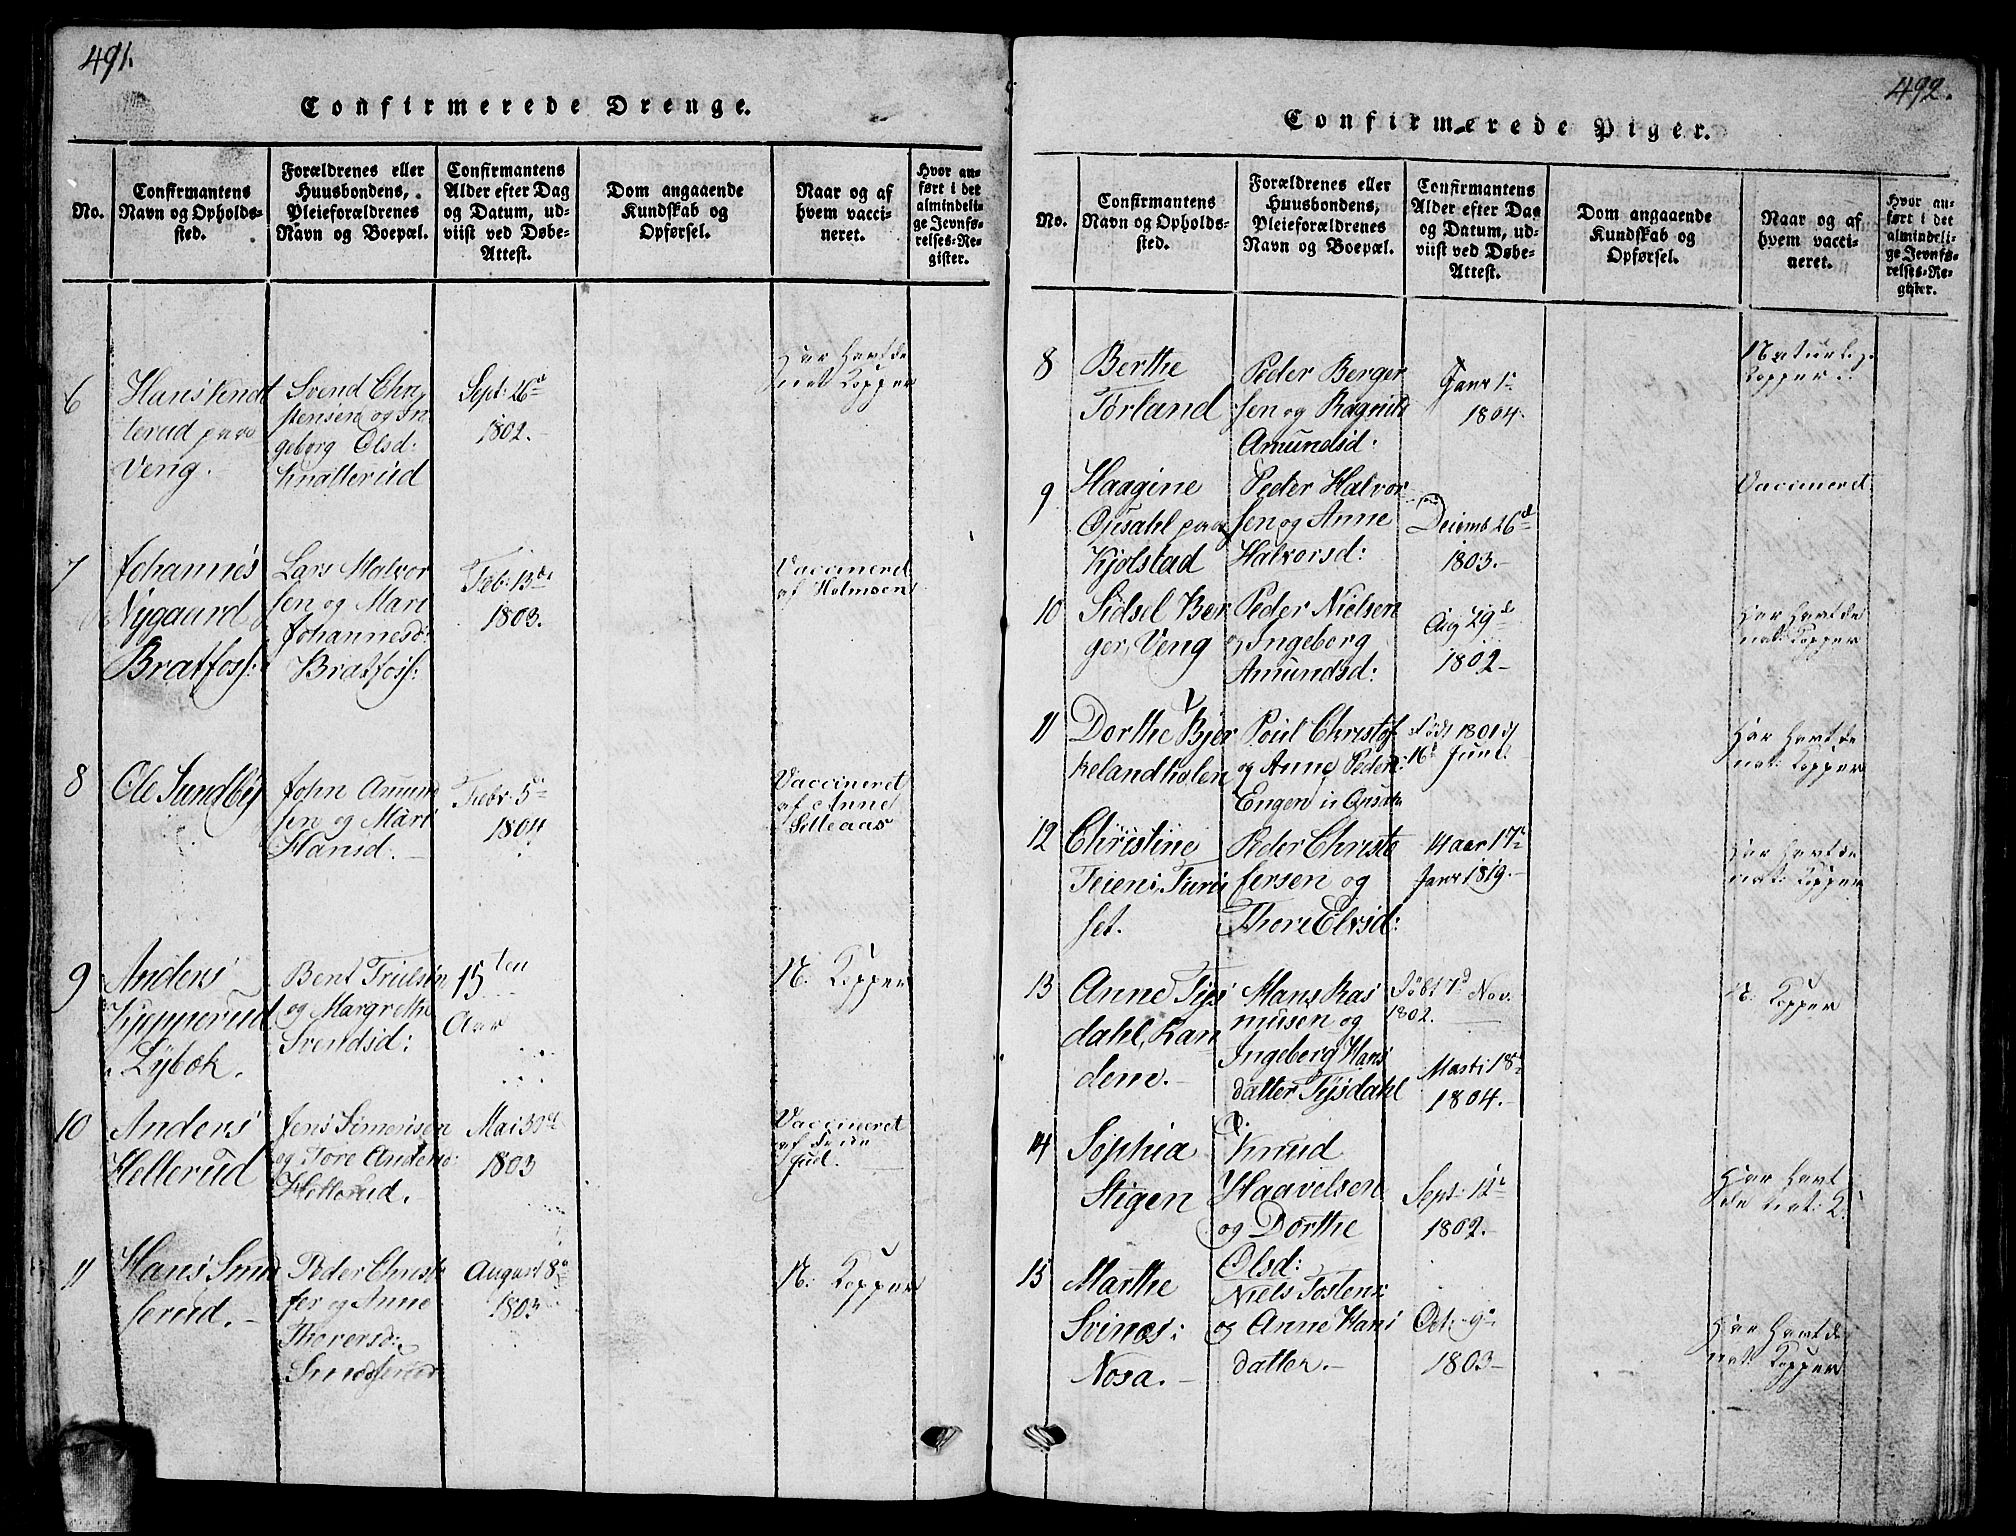 491.
Confirmerede Drenge.
No.
Confirmantens
Navn og Opholds-
sted.
Forældrenes eller
Huusbondens,
Pleieforældrenes
Navn og Boepæl.
Confirmantens
Alder efter Dag
og Datum, ud-
viist ved Døbe-
Attest.
Dom angaaende
Kundskab og
Opførsel.
Naar og af
hvem vacci-
neret.
Hvor an-
ført i det
almindeli-
ge Jevnfø-
relses-Re-
gister.
6
Hans
terud paa
Veng.
Svend Chri
stensen og In
geborg Olsd:
Knatterud
Sept: 26d
1802.
Har havt de
nat Kopper
7
Johannes
Nygaard
Bratfoss:
Lars Halvor
sen og Mari
Johannesd:
Bratfoss:
Feb: 13de
1803.
Vaccineret
af Holmsen
8
Ole Sundbye
John Amund
sen og Mari
Hansd.
Febr: 5
1804
Vaccineret
af Anne
Lilleaas
9
Anders
Kopperud
Lybek.
Bent Trulsen
og Margrethe
Svendsd:
15ten
Aar
N: Kopper
10
Anders
Hellerud
Jens Simensen
og Tore Andersd:
Hellerud.
Mai 30d
1803
Vaccineret
af
Jud.
11
Hans Smed
serud.
Peder Christo
fer og Anne
Thorersd:
Smedserud
August 8
1803
N: Kopper
492.
Confirmerede Piger.
No.
Confirmantens
Navn og Opholds-
sted.
Forældrenes eller
Huusbondens,
Pleieforældrenes
Navn og Boepæl.
Confirmantens
Alder efter Dag
og Datum, ud-
viist ved Døbe-
Attest.
Dom angaaende
Kundskab og
Opførsel.
Naar og af
hvem vacci-
neret.
Hvor an-
ført i det
almindeli-
ge Jevnfø-
relses-Re-
gister.
8
Berthe
Torland
Peder Berger
sen og Ragnild
Amundsd:
Janr 1
1804.
Naturlige
Kopper.
9
Haagine
Ojesahl paa
Kjolstad
Peder Halvor
sen og Anne
Halvorsd:
Decemb 26d
1803.
Vaccineret
10
Sidsel Ber
ger, Veng
Peder Nielsen
og Ingeborg
Amundsd:
Aug 29d
1802
Har havt de
nat: Kopper
11
Dorthe Bjor
kelandholen
Poul Christof
og Anne Peders:
Engen
Født 1801 d
16d Juni.
Har havt de
nat: Kopper
12
Christine
Teien i Turi
set.
Peder Christo
fersen og
Thore Elvsd:
14 aar 17
Janr 1819.
Har havt de
nat: Kopper
13
Anne Tÿs
dahl, Ran
dem.
Hans Ras
musen og
Ingeborg Hans
datter Tÿsdahl
Født 7d Nov.
1802.
Marti 18
1804.
N: Kopper
14
Sophia
Stigen
Knud
Haavelsen
og Dorthe
Olsd:
Sept: 12
1802.
Har havt
de nat: K.
15
Marthe
Svines:
Nosa.
Niels Tostens:
og Anne Hans
datter.
Oct: 9
1803
Har havt de
nat: Kopper